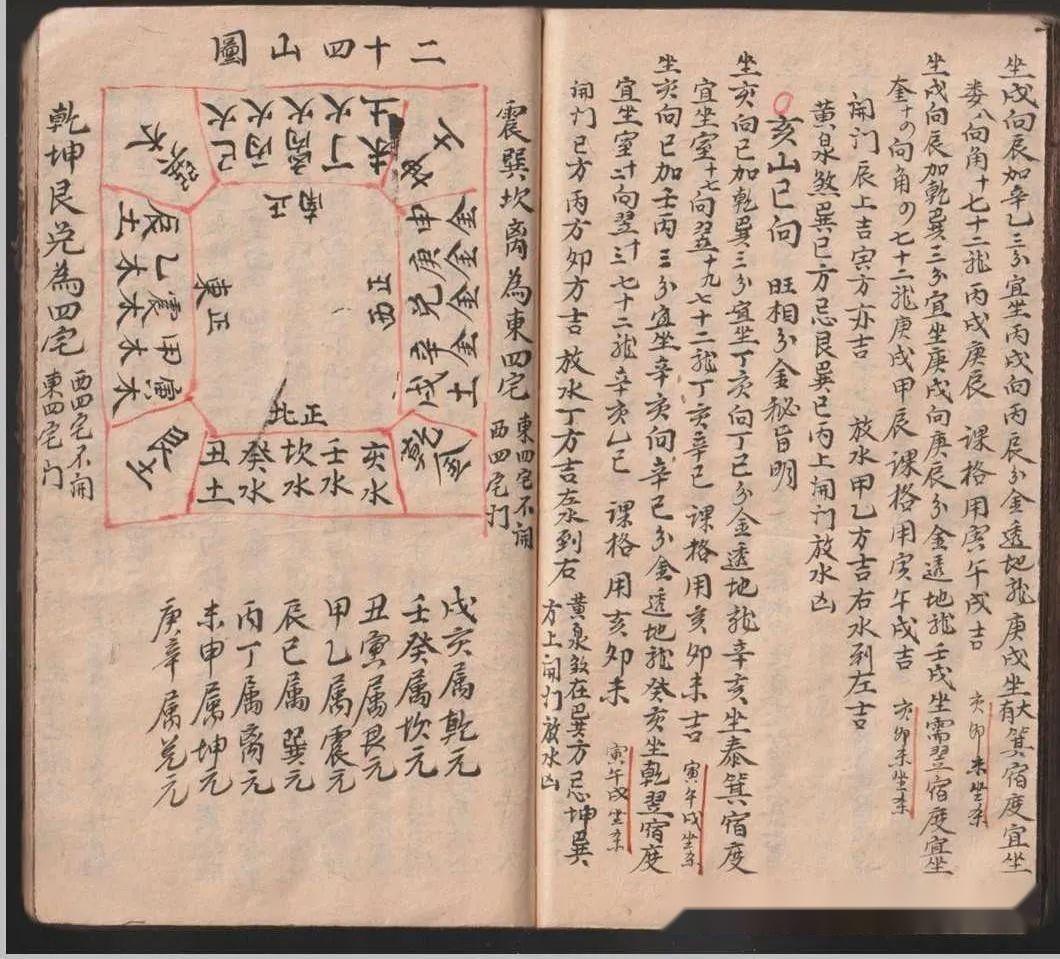 坐戌向辰加辛乙三分宜坐丙戌向丙辰分金透地龙庚戌坐大有箕宿度宜坐
娄八向角十七十二龙丙戌庚辰 课格用寅午戌吉 亥卯未坐杀
坐戌向辰加乾巽三分宜坐庚戌向庚辰分金透地龙壬戌坐需翌宿度宜坐
奎十の向角の七十二龙庚戌甲辰课格用寅午戌吉 亥卯未坐杀
闹门辰上吉寅方亦吉 放水甲乙方吉右水到左吉
黄泉煞巽巳方忌艮巽巳丙上闹门放水凶
亥山巳向 旺相分金秘旨明
坐亥向巳加乾巽三分宜坐丁亥向丁巳分金透地龙辛亥坐泰箕宿度
宜坐室十七向翌十九七十二龙丁亥辛巳 课格用亥卯未吉 寅午戌坐杀
坐亥向巳加壬丙三分宜坐辛亥向辛巳分金透地龙癸亥坐乾翌宿度
宜坐室 向翌 七十二龙辛亥乙巳 课格用亥卯未 寅午戌坐杀
闹门巳方丙方卯方吉 放水丁方吉左水到右 黄泉煞在巽方忌坤巽
方上闹门放水凶
二十四山圖
震巽坎离為東四宅 東四宅不闹
西四宅门
乾坤艮兑為四宅 西四宅不闹
東四宅门
巳火 丙火 丙火 丁火 未土
申金 庚金 兑金 辛金 戌土
乾金
亥水 壬水 坎水 癸水 丑土
艮土
寅木 甲木 震木 乙木 辰土
正南
正西
正北
正東
戌亥属乾元
壬癸属坎元
丑寅属艮元
甲乙属震元
辰巳属巽元
丙丁属离元
未申属坤元
庚辛属兑元